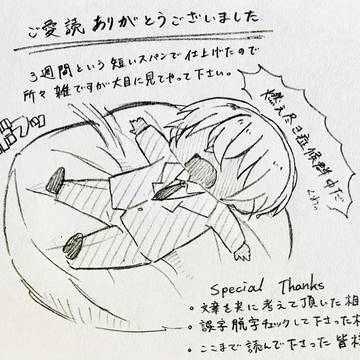 ご愛読 ありがとうございました
3週間という短いスパンで仕上げたので
所々 雑ですが大目に見てやって下さい。
燃え尽き症候群中だ
Special Thanks
・文章を共に考えて頂いた相
・誤字脱字チェックして下さった
・ここまで読んで下さった皆様